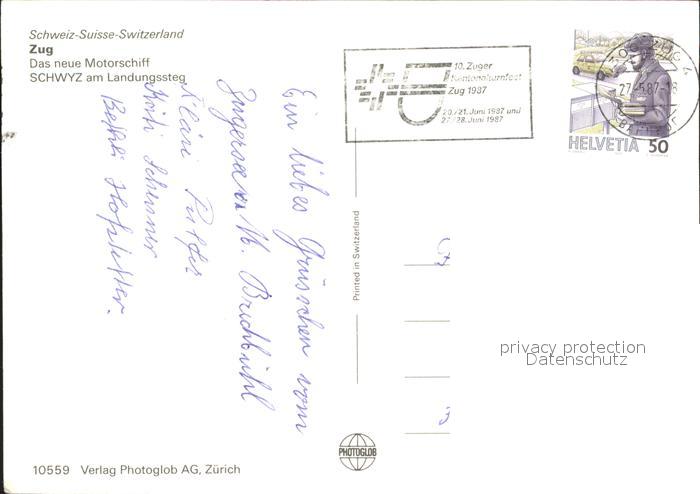 Schweiz-Suisse-Switzerland
Zug
Das neue Motorschiff
SCHWYZ am Landungssteg
10. Zuger
Kantonalturnfest
Zug 1987
20./21. Juni 1987 und
27./28. Juni 1987
HELVETIA 50
Ein liebes Grüsschen vom
Zugersee M.
Kläri
Hofstetter.
Printed in Switzerland
privacy protection
Datenschutz
PHOTOGLOB
10559 Verlag Photoglob AG, Zürich